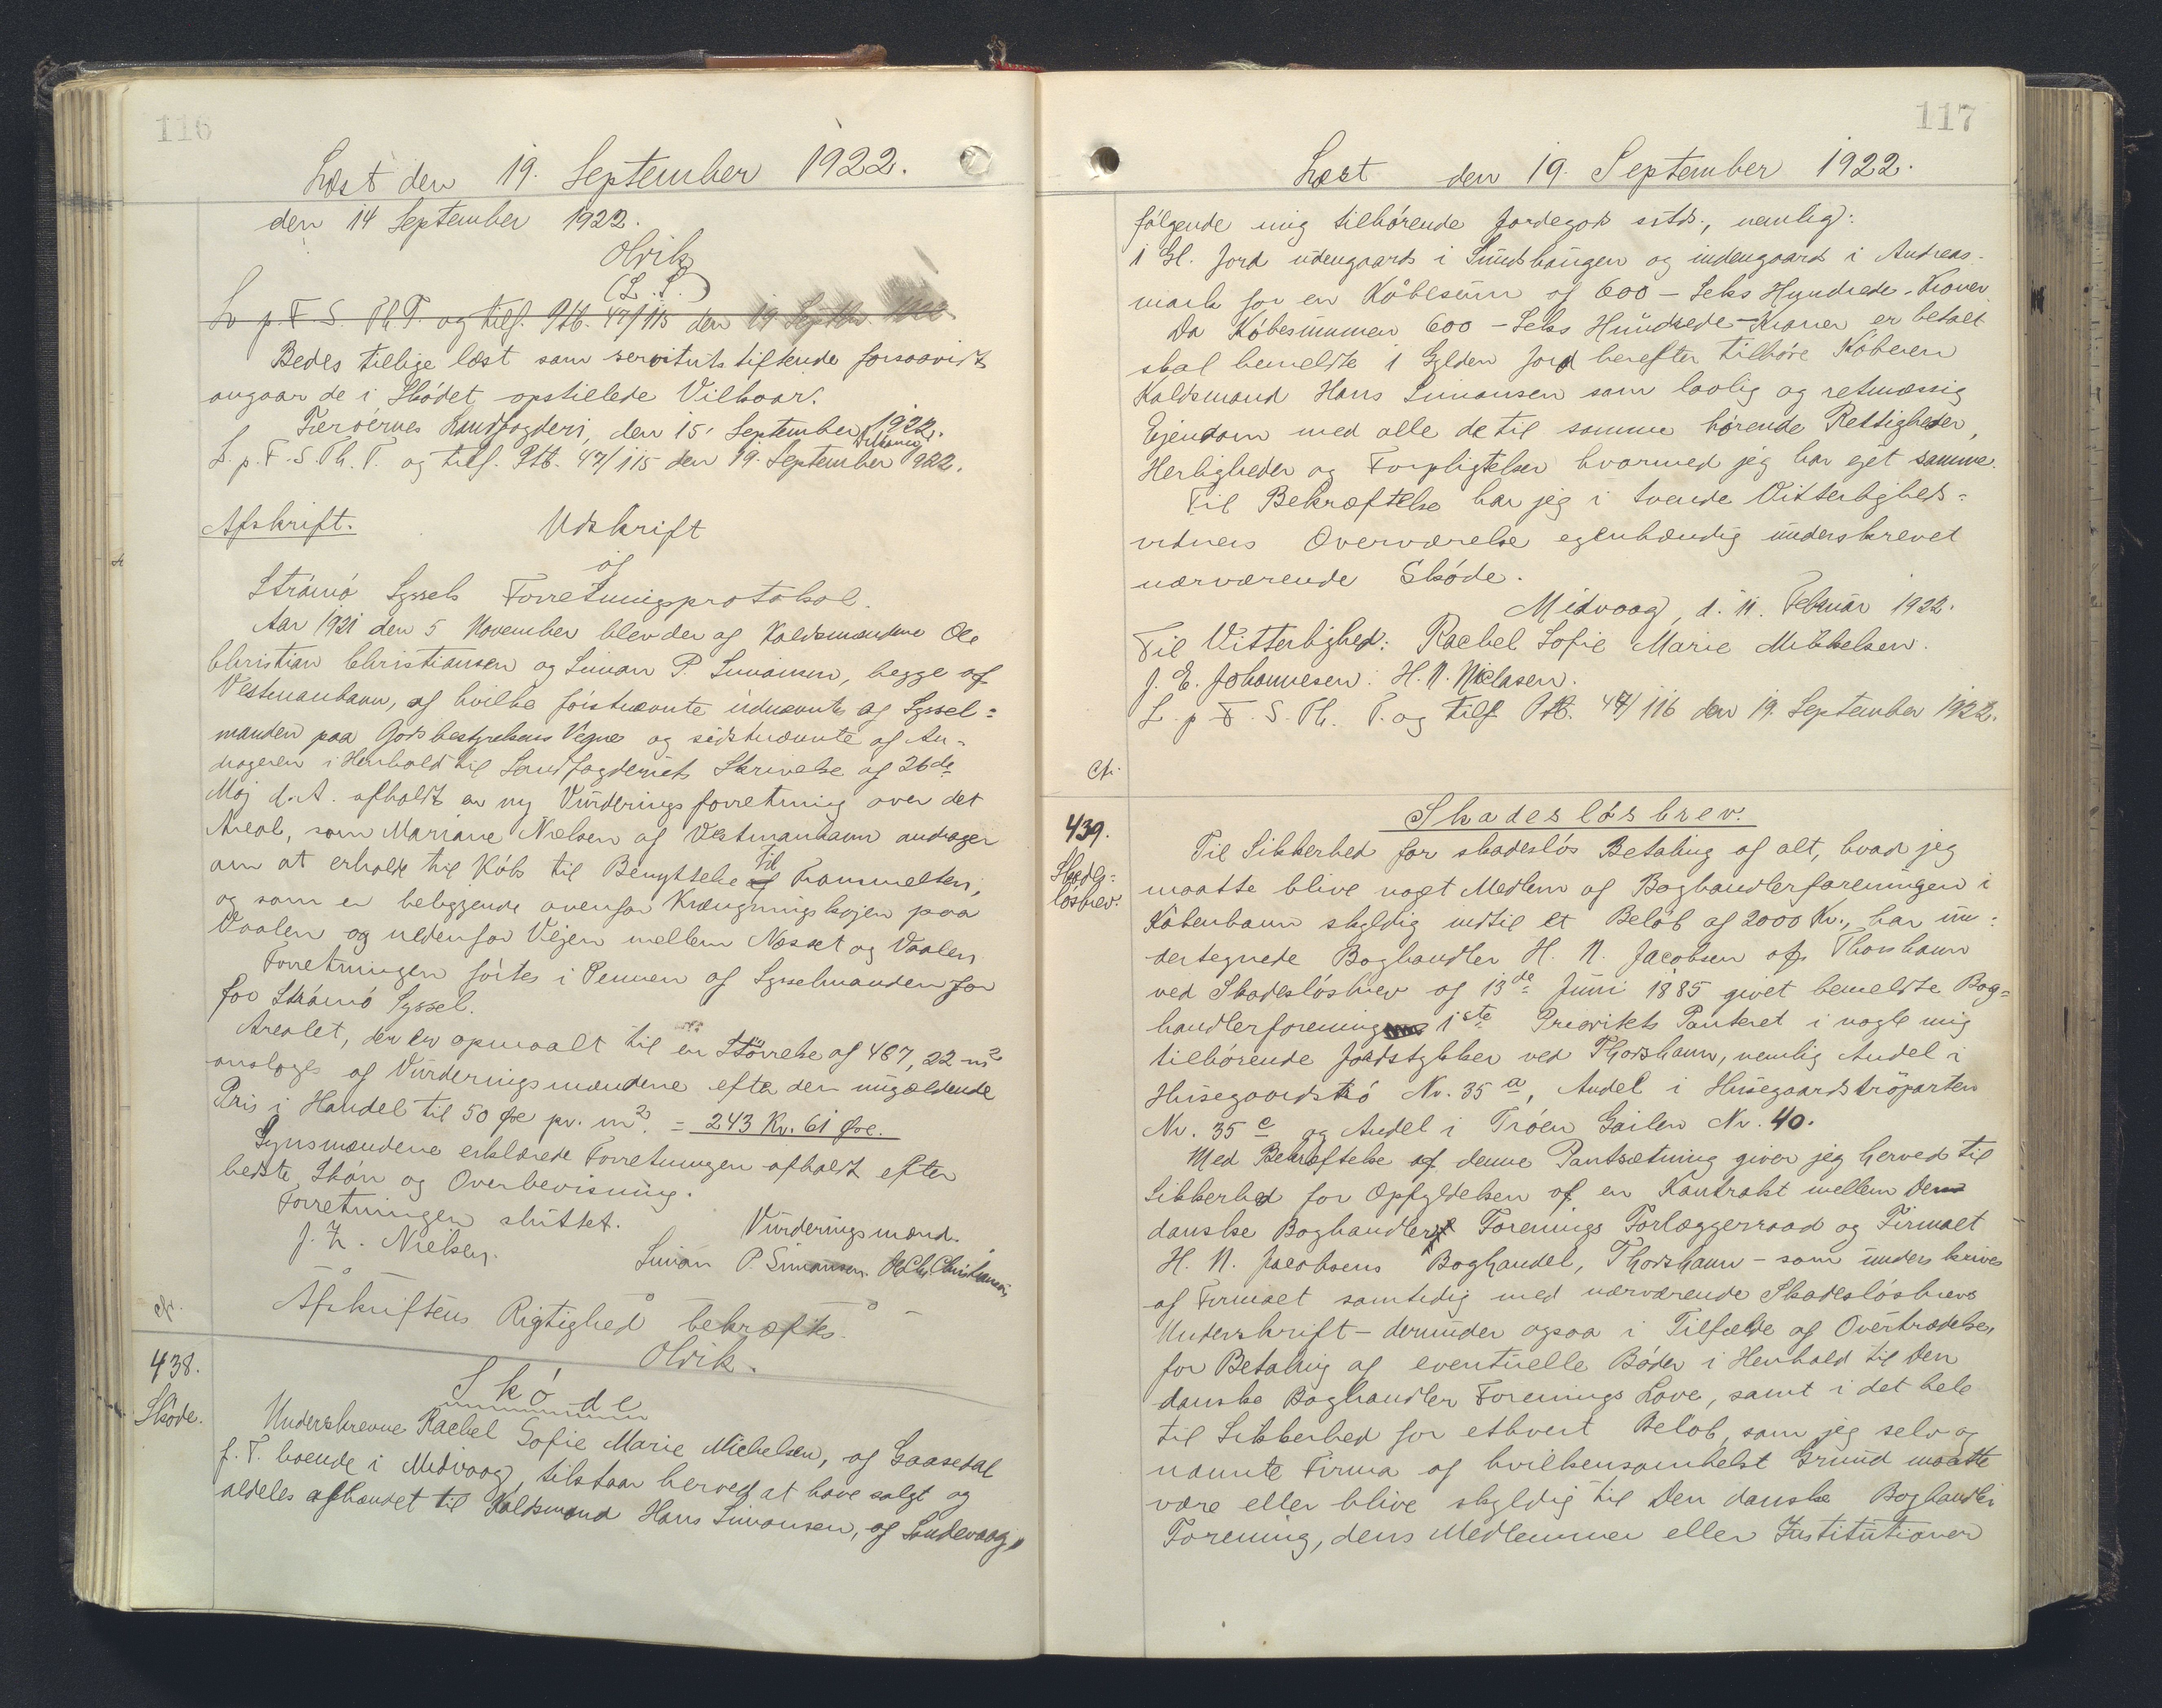 116
Læst den 19. September 1922.
den 14 September 1922.
Olrik
(L.S.)
L. p. F. S. Th T. og tilf. Ptb. 47/115 den 19 Septbr. 1922
Bedes tillige læst som servitutstiftende forsaavidt
angaar de i Skødet opstillede Vilkaar.
Færøernes Landfogderi, den 15' September 1922.
L. p. F. S. Th. T. og tilf. Ptb. 47/115 den 19. September 1922.
Afskrift. Udskrift
af
Strømø Syssels Forretningsprotokol.
Aar 1921 den 5 November blev der af Kaldsmændene Ole
Christian Christiansen og Simon P. Simonsen, begge af
Vestmanhavn, af hvilke førstnævnte udnævnte af Syssel=
manden paa Godsbestyrelsens Vegne og sidstnævnte af An-
drageren i Henhold til Landfogderiets Skrivelse af 26de
Maj d. A. afholdt en ny Vurderingsforretning over det
Areal, som Mariane Nielsen af Vestmanhavn andrager
om at erholde til Køb til Benyttelse til Transmelteri,
og som er beliggende ovenfor Krængningskøjen paa
Vaalen og nedenfor Vejen mellem Nesset og Vaalen.
Forretningen førtes i Pennen af Sysselmanden for
for Strømø Syssel.
Arealet, der er opmaalt til en Størrelse af 487,22 m2
ansloges af Vurderingsmændene efter den nugældende
Pris i Handel til 50 Øre pr. m2. = 243 Kr. 61 Øre.
Synsmændene erklærede Forretningen afholdt efter
bedste Skøn og Overbevisning.
Forretningen sluttet.
Vurderingsmænd.
J. Z. Nielsen. Simon P. Simonsen. Ole Chr. Christiansen
Afskriftens Rigtighed bekræftes.
cfr. Olrik.
438. Skøde
Skøde. Underskrevne Rachel Sofie Marie Michelsen, af Gaasedal
p. T. boende i Midvaag, tilstaar herved at have solgt og
aldeles afhændet til Kaldsmand Hans Simonsen, af Sandevaag,
117
Læst den 19 September 1922.
følgende mig tilhørende Jordegods sstds., nemlig:
1 Gl. Jord udengaards i Sundshaugen og indengaards i Andreas-
mark for en Købesum af 600 - Seks Hundrede - Kroner.
Da Købesummen 600 - Seks Hundrede - Kroner er betalt
skal bemeldte 1 Gylden Jord herefter tilhøre Køberen
Kaldsmand Hans Simonsen som lovlig og retmæssig
Ejendom med alle de til samme hørende Rettigheder,
Herligheder og Forpligtelser hvormed jeg har ejet samme.
Til Bekræftelse har jeg i tvende Vitterligheds=
vidners Overværelse egenhændig underskrevet
nærværende Skøde.
Midvaag, d. 11. Februar 1922.
Til Vitterlighed: Rachel Sofie Marie Mikkelsen.
J. E. Johannesen. H. N. Niclasen.
L. p. F. S. Th. T. og tilf. Ptb. 47/116 den 19. September 1922.
cfr.
439. Skadesløsbrev.
Skades=
løsbrev.
Til Sikkerhed for skadesløs Betaling af alt, hvad jeg
maatte blive noget Medlem af Boghandlerforeningen i
København skyldig indtil et Beløb af 2000 Kr., har un=
dertegnede Boghandler H. N. Jacobsen af Thorshavn
ved Skadesløsbrev af 13de Juni 1885 givet bemeldte Bog=
handlerforening 1ste Prioritets Panteret i nogle mig
tilhørende Jordstykker ved Thorshavn, nemlig Andel i
Husegaardstrø Nr. 35 a, Andel i Husegaardstrøparten
Nr. 35 c og Andel i Trøen Gailen Nr. 40.
Med Bekræftelse af denne Pantsætning giver jeg herved til
Sikkerhed for Opfyldelsen af en Kontrakt mellem Den
danske Boghandler Forenings Forlæggerraad og Firmaet
H. N. Jacobsens Boghandel, Thorshavn - som underskrives
af Firmaet samtidig med nærværende Skadesløsbrevs
Underskrift - derunder ogsaa i Tilfælde af Overtrædelse,
for Betaling af eventuelle Bøder i Henhold til Den
danske Boghandler Forenings Love, samt i det hele
til Sikkerhed for ethvert Beløb, som jeg selv og
nævnte Firma af hvilkensomhelst Grund maatte
være eller blive skyldig til Den danske Boghandler
Forening, dens Medlemmer eller Institutioner